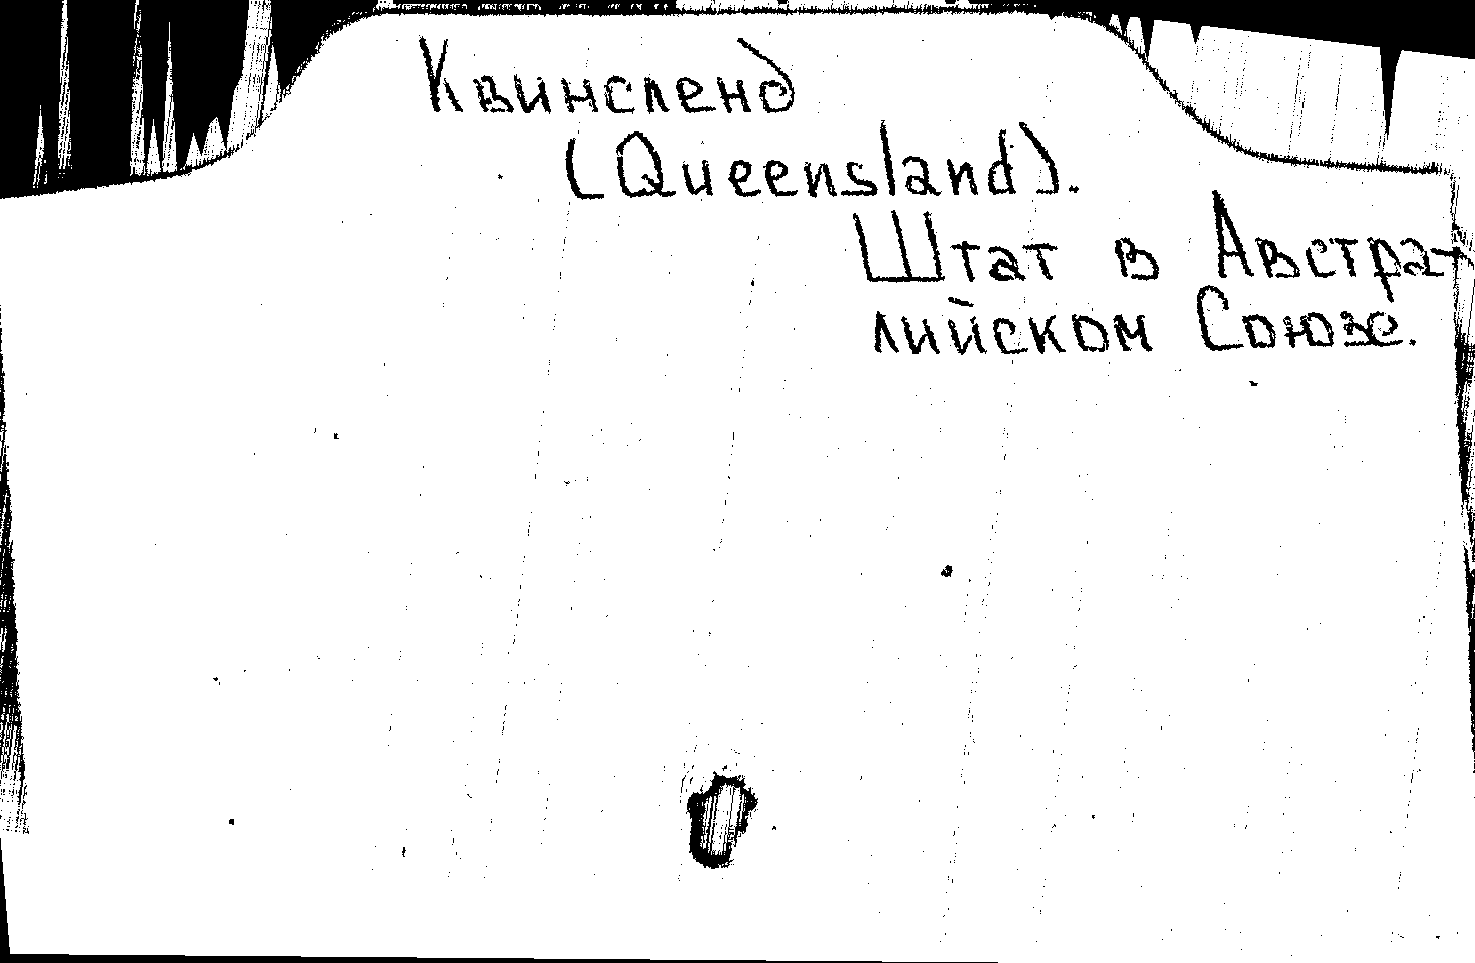 Квинсленд
(Queensland).
Штат в Австра-
лийском Союзе.